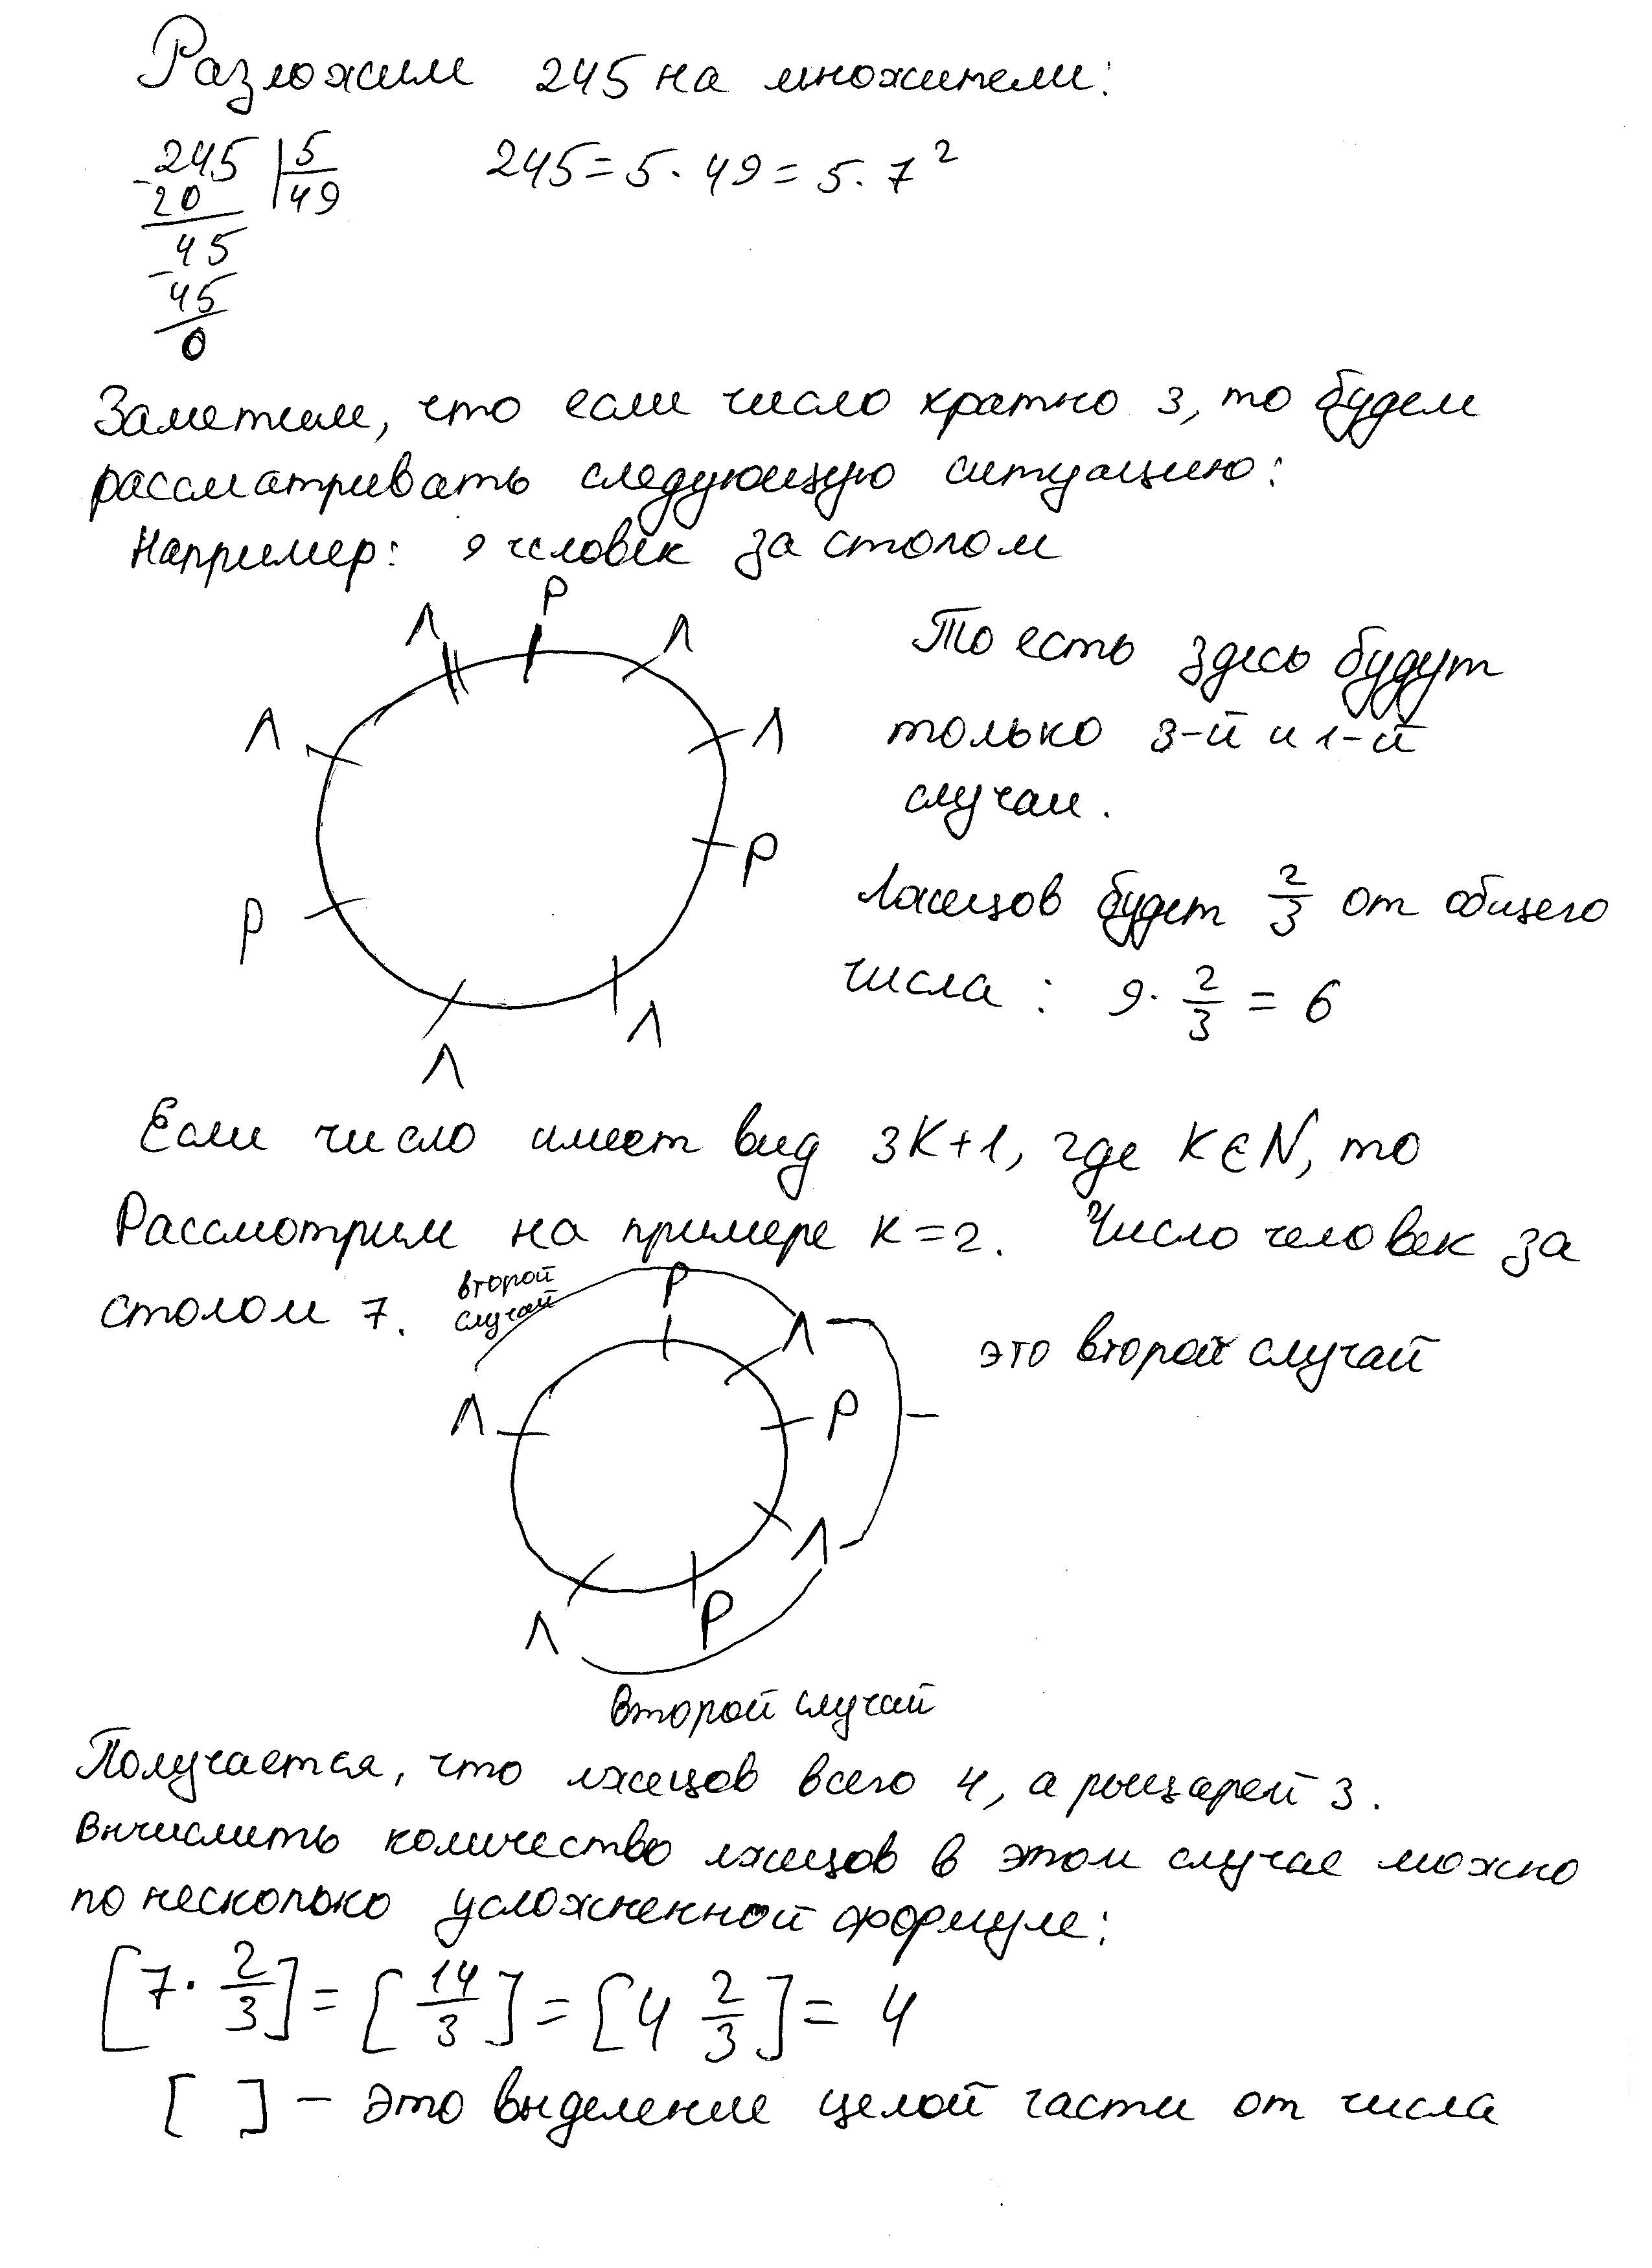 Разложим 245 на множители:
245 | 5
- 20 49
45
- 45
0
245 = 5 · 49 = 5 · 7²
Заметим, что если число кратно 3, то будем
рассматривать следующую ситуацию:
Например: 9 человек за столом
Р
Л Л
Л Л
Р Р
Л Л
То есть здесь будут
только 3-й и 1-й
случаи.
Лжецов будет 2/3 от общего
числа : 9 · 2/3 = 6
Если число имеет вид 3К+1, где К∈N, то
Рассмотрим на примере К=2. Число человек за
столом 7.
второй
случай
Р
Л
Л Р
Л
Л Р
это второй случай
Второй случай
Получается, что лжецов всего 4, а рыцарей 3.
Вычислить количество лжецов в этом случае можно
по несколько усложненной формуле:
[7 · 2/3] = [14/3] = [4 2/3] = 4
[ ] – это выделение целой части от числа